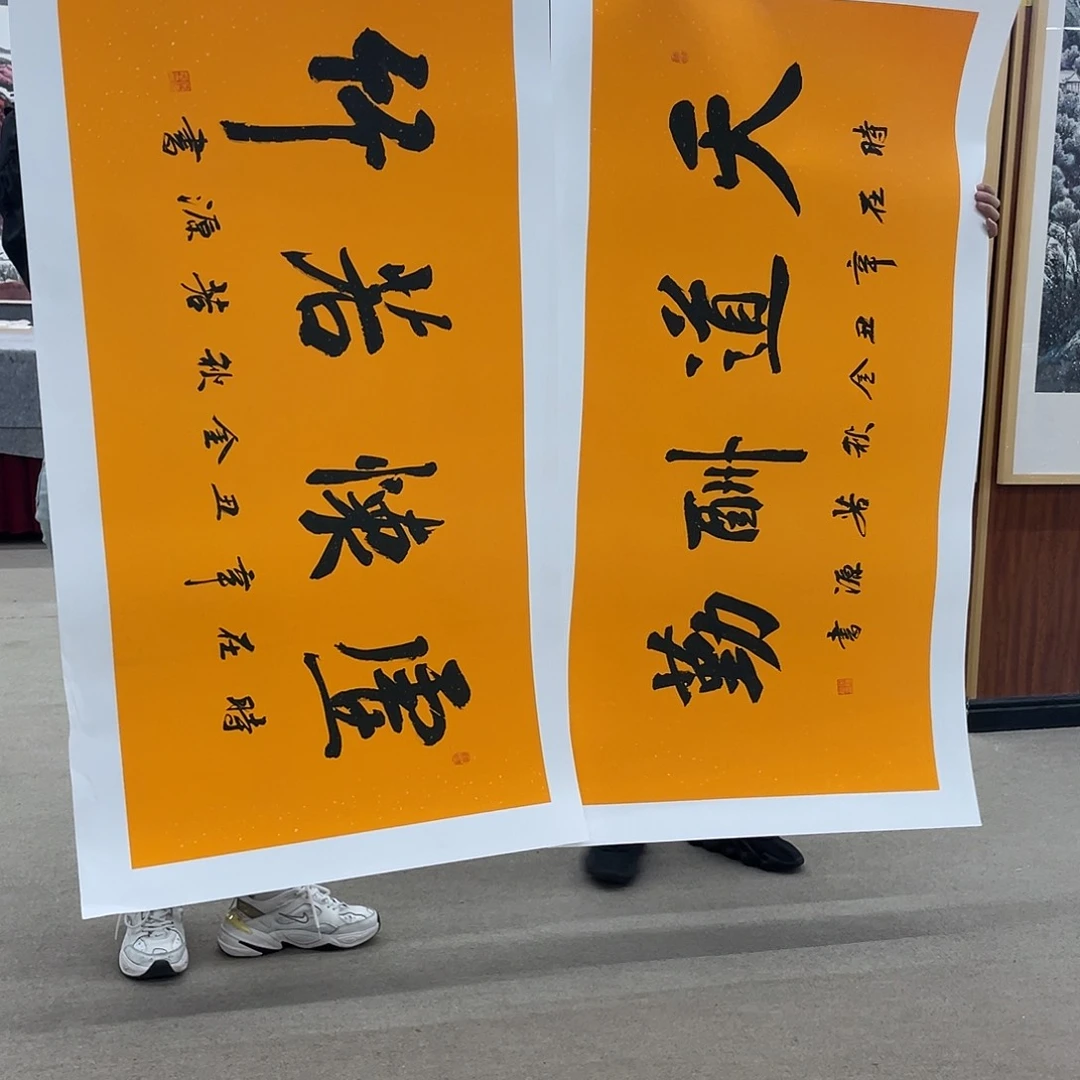 虛懷若竹
時在辛丑金秋若源書
天道酬勤
時在辛丑金秋若源書